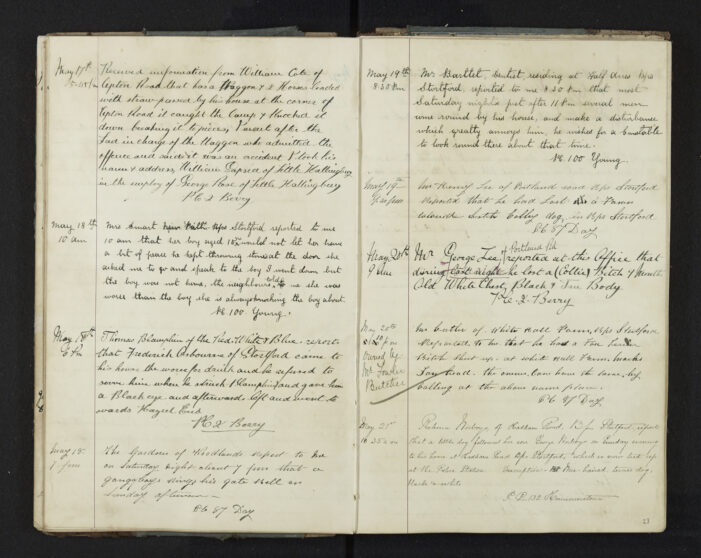 May 17th
Received information from William Cole of
Lepton Road that has a Waggon & 2 Horses loaded
with straw passed by his house at the corner of
Lepton Road it caught the Lamp & knocked it
down breaking it to pieces, I went after the
Lad in charge of the Waggon who admitted the
offence and said it was an accident I took his
name & address, William Papsea of Little Hallingbury
in the employ of George Rose of Little Hallingbury
PC 2 Berry
May 18th
10 am
Mrs Smart Stortford reported to me
10 am that her boy aged would not let her have
a bit of peace he kept throwing stones at the door she
asked me to go and speak to the boy I went down but
the boy was not home, the neighbours told me she was
worse than the boy she is always knocking the boy about.
Pc 100 Young.
May 18th
6 Pm
Thomas of the Red White & Blue reports
that Frederick of Stortford came to
his house the worse for drink and he refused to
serve him when he struck and gave him
a Black eye and afterwards left and went to
wards Hazel End
PC 2 Berry
May 18
7 pm
The Gardener of Woodlands report to me
on Saturday night about 7 pm that a
gang boys rings his gate bell on
Sunday afternoon
Pc 87 Day
May 19th
8 30 Pm
Mr Bartlet, Dentist residing at Half Acres Bps
Stortford, reported to me 8 30 Pm that most
Saturday nights past after 11 Pm several men
come round by his house, and make a disturbance
which greatly annoys him, he wished for a Constable
to look round there about that time.
Pc 100 Young.
May 19th
Mr Henry Lee of Portland road Bps Stortford
Reported that he had Lost a Fawn
coloured Collie dog in Bps Stortford
Pc 87 Day
May 20th
9
Mr George Lee of Portland Rd reported at this Office that
during last night he lost a (Collie) Bitch 7 Months
Old White Chest, Black & Body
PC 2 Berry
May 20th
Owned by
Mr Fowler
Butcher
Mr Cutler of White Hall Farm, Bps Stortford
Reported to me that he has a Fox Terrier
Bitch shut up at White Hall Farm, marks
Tan head. the owner can have the same by
calling at the above name place.
Pc 87 Day
May 21st
10 35 am
of Road, Bps Stortford, report
that a little dog followed his son George on Sunday evening
to his home at Road Bps Stortford, which is now tied up
at the Police Station Description haired terrier dog,
black & white
P.C. 132
23